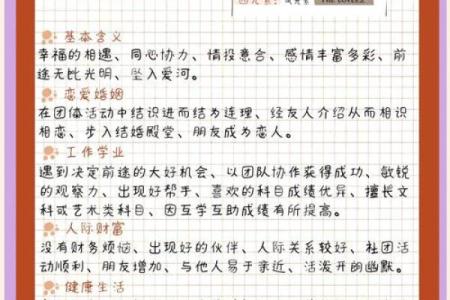 THE LOVERS.
基本含义
幸福的相遇、同心协力、情投意合、感情丰富多彩、前
途无比光明、坠入爱河。
恋爱婚姻
在团体活动中结识进而结为连理、经友人介绍从而相识
相恋、步入结婚殿堂、朋友成为恋人。
工作学业
遇到决定前途的大好机会、以团队协作获得成功、敏锐
的观察力、出现好帮手、喜欢的科目成绩优异、擅长文
科或艺术类科目、因互学互助成绩有所提高。
人际财富
没有财务烦恼、出现好的伙伴、人际关系较好、社团活
动顺利、朋友增加、与他人易于亲近、活泼开朗幽默。
健康生活